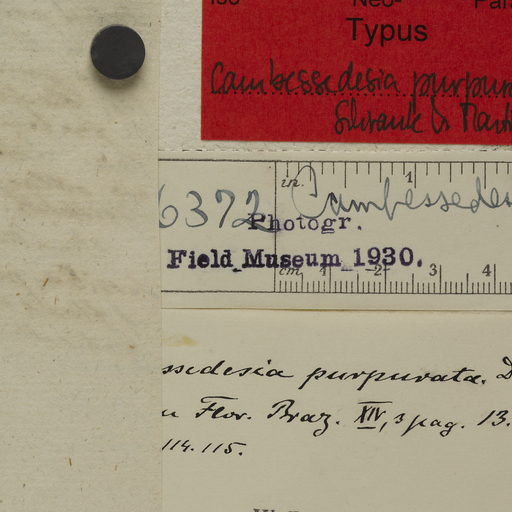 Iso Neo- Para
Typus
Cambessedesia purpur
Schrank & Marti
in. 1
6372 Cambessedes
Photogr.
Field Museum 1930.
cm 1 2 3 4
ssedesia purpurata. D
Flor. Braz. XIV, 3 pag. 13.
114. 115.